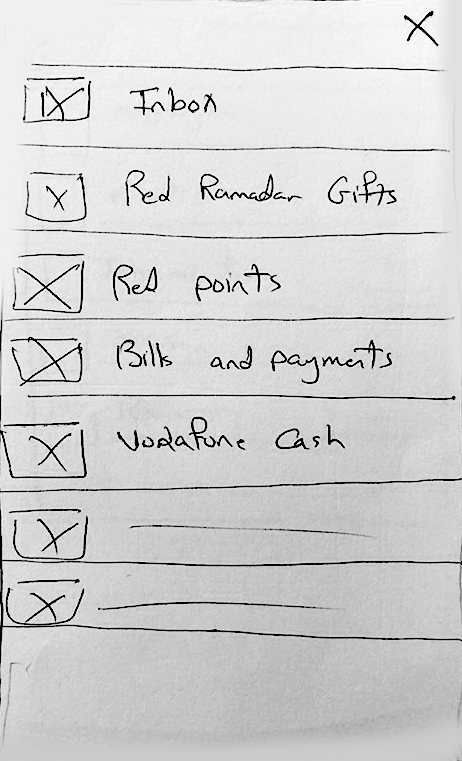 X
Inbox
Red Ramadan Gifts
Red points
Bills and payments
Vodafone Cash